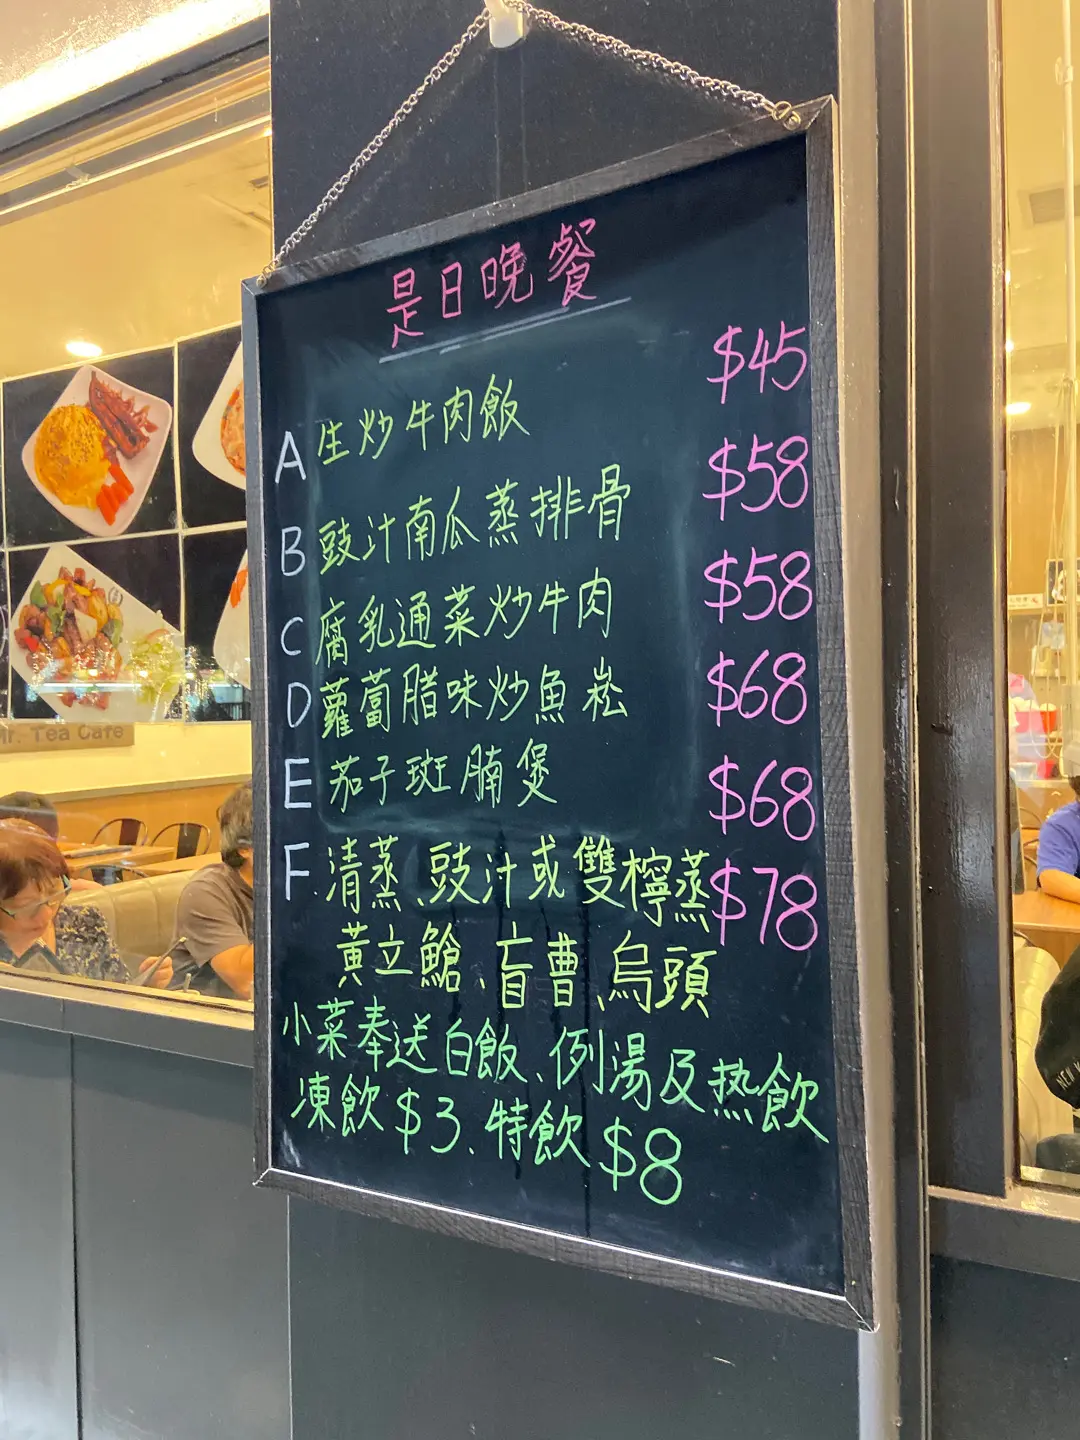 是日晚餐
A 生炒牛肉飯 $45
B 豉汁南瓜蒸排骨 $58
C 腐乳通菜炒牛肉 $58
D 蘿蔔腊味炒魚崧 $68
E 茄子斑腩煲 $68
F 清蒸、豉汁或雙檸蒸 $78
黃立鯧、盲曹、烏頭
小菜奉送白飯、例湯及热飲
凍飲$3、特飲$8
Mr. Tea Cafe